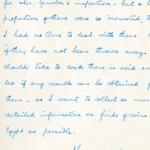 for Mr. Grube's inspection - but a l
proportion of them were so encrusted t
I had no time to deal with them.
if they have not been thrown away,
should like to soak them in acid and
see if any results can be obtained f
them, as I want to collect as much
detailed information on finds of coins
Egypt as possible.